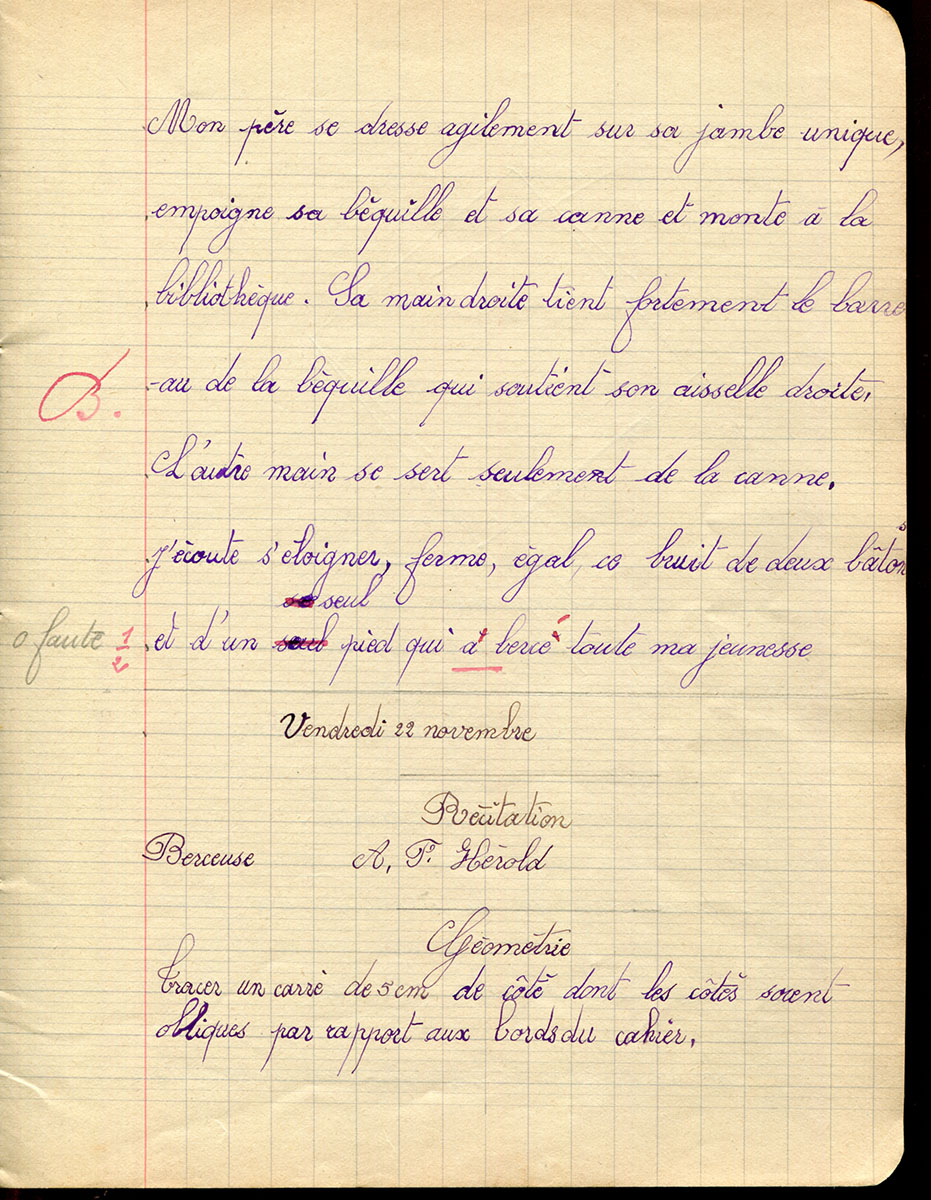 Mon père se dresse agilement sur sa jambe unique,
empoigne sa béquille et sa canne et monte à la
bibliothèque. Sa main droite tient fortement le barre
B.
-au de la béquille qui soutient son aisselle droite.
L'autre main se sert seulement de la canne.
j'écoute s'éloigner, ferme, égal, ce bruit de deux bâtons
seul
0 faute 1/2
et d'un seul pied qui a bercé toute ma jeunesse
Vendredi 22 novembre
Récitation
Berceuse A. F. Hérold
Géométrie
Tracer un carré de 5 cm de côté dont les côtés soient
obliques par rapport aux bords du cahier.